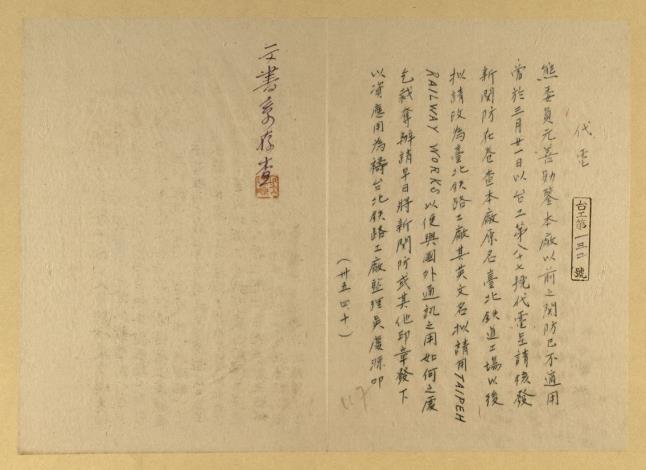 代電
台工第一三〇號
熊委員元善勛鑒本廠以前之関防已不適用
曾於三月廿一日以台工第八十七號代電呈請核發
新関防在卷查本廠原名臺北鉄道工場以後
拟請改為臺北鉄路工廠其英文名拟請用TAIPEH
RAILWAY WORKS以便與國外通訊之用如何之處
乞裁奪辦請早日將新関防或其他印章發下
以資應用為禱台北鉄路工廠監理吳慶源叩
(卅五四十)
文書系存查
117